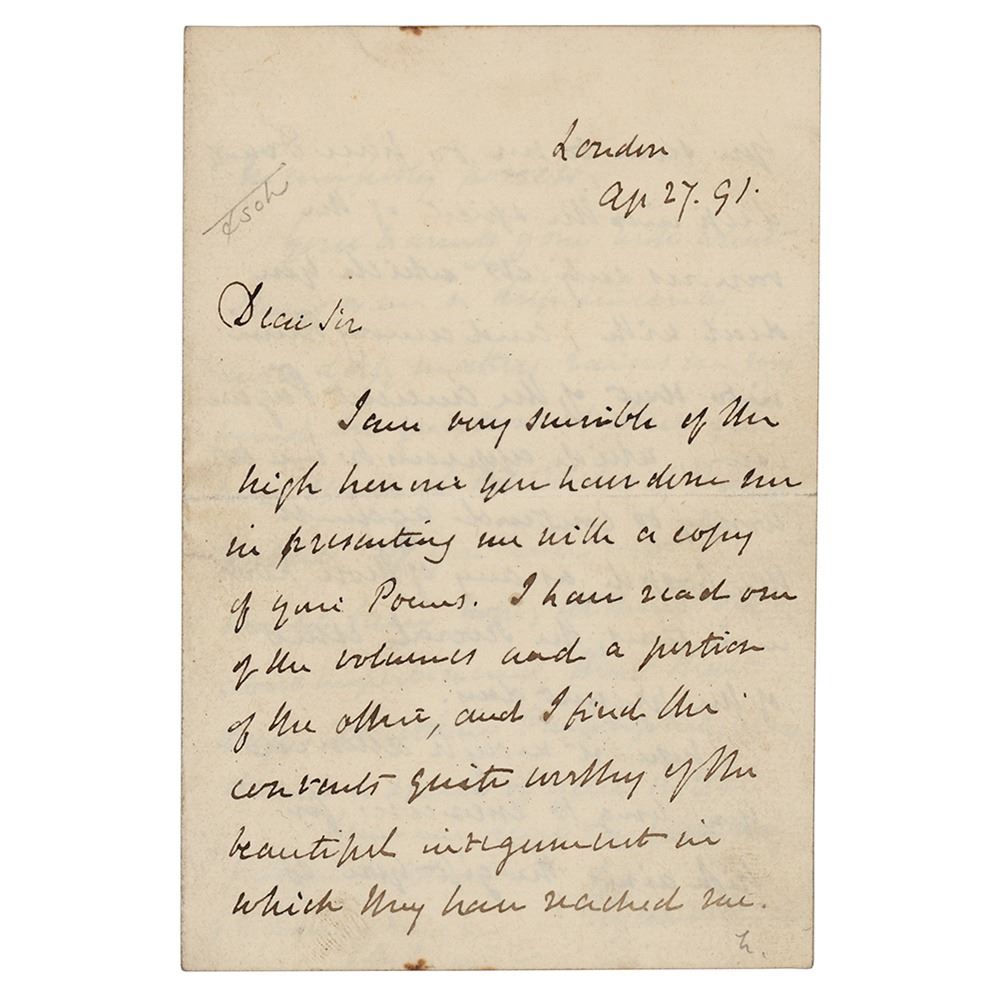 London
Ap 27. 91.
Dear Sir
I am very sensible of the
high honour you have done me
in presenting me with a copy
of your Poems. I have read one
of the volumes and a portion
of the other, and I find the
contents quite worthy of the
beautiful integument in
which they have reached me.